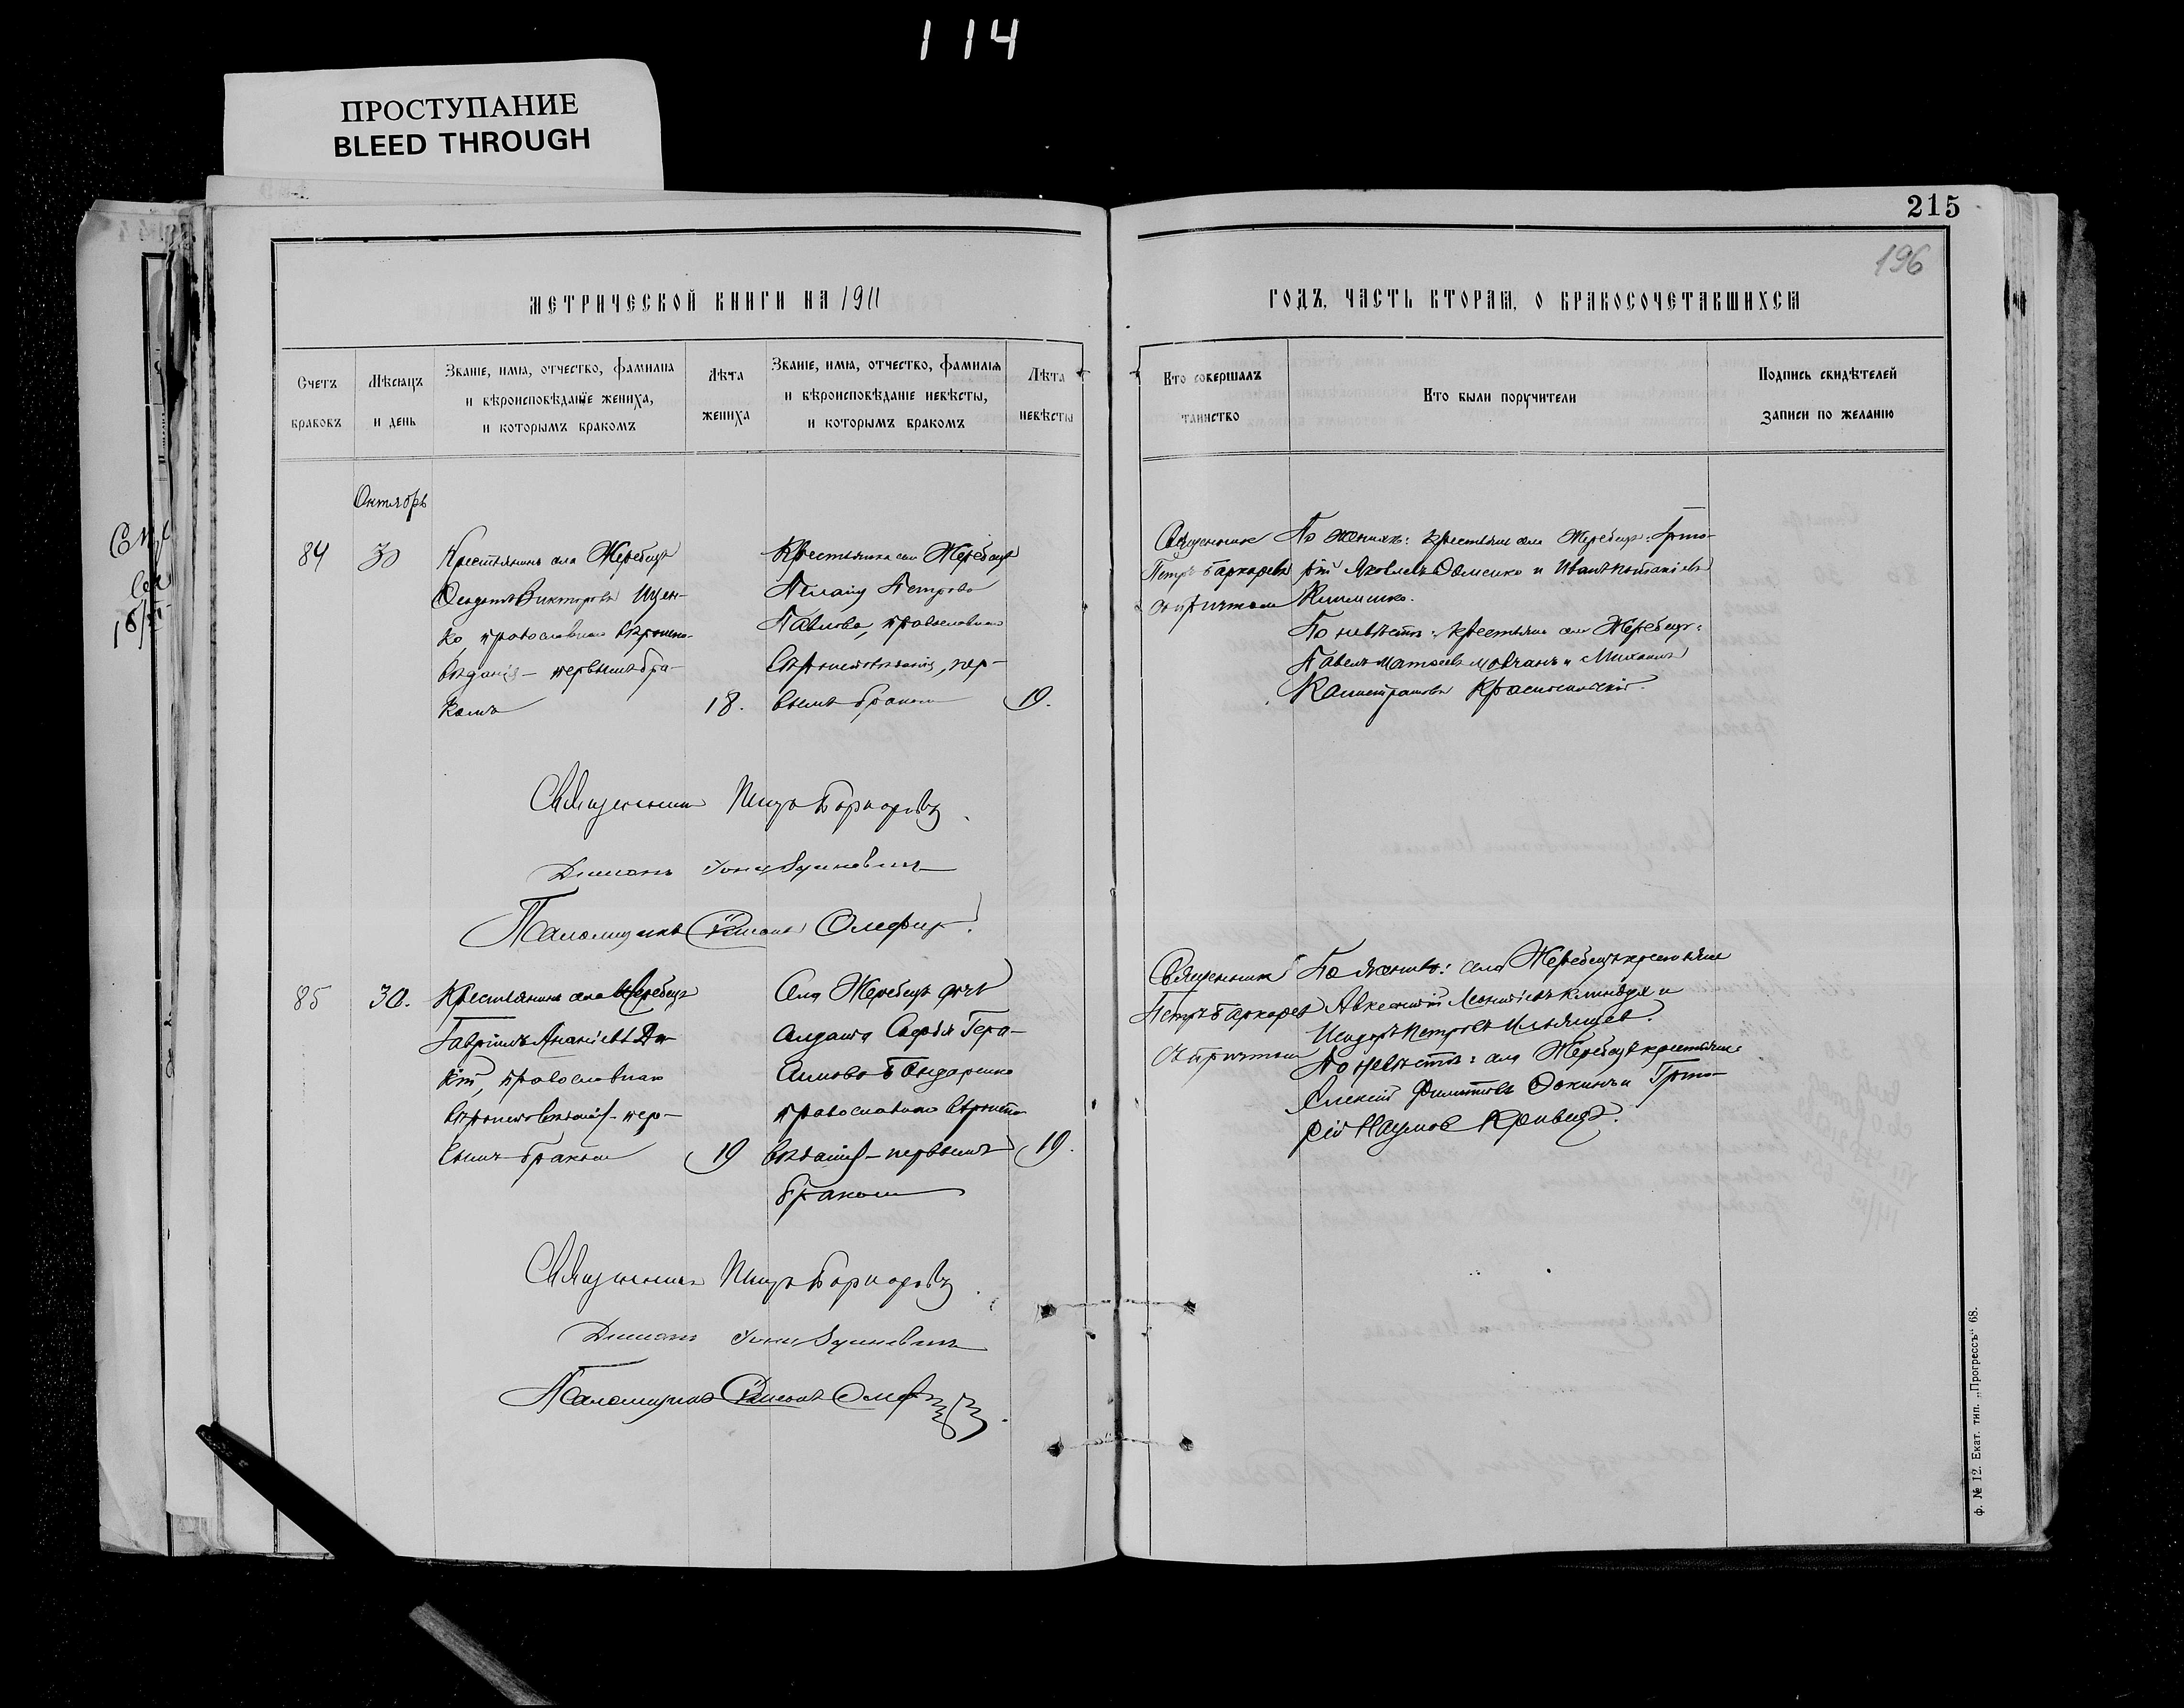 114
ПРОСТУПАНИЕ
BLEED THROUGH
215
196
МЕТРИЧЕСКОЙ КНИГИ НА 1911
ГОДЪ, ЧАСТЬ ВТОРАЯ, О БРАКОСОЧЕТАВШИХСЯ
Счетъ браковъ
Мѣсяцъ и день
Званіе, имя, отчество, фамилія
и вѣроисповѣданіе жениха,
и которымъ бракомъ
Лѣта жениха
Званіе, имя, отчество, фамилія
и вѣроисповѣданіе невѣсты,
и которымъ бракомъ
Лѣта невѣсты
Кто совершалъ таинство
Кто были поручители
Подпись свидѣтелей
записи по желанію
Октябрь
84
30
Крестьянинъ села Жеребца
Феодотъ Викторовъ Ищен-
ко, православнаго вѣроиспо-
вѣданія – первымъ бра-
комъ
18.
Крестьянка села Жеребца
Пелагія Петрова
Павлова, православнаго
вѣроисповѣданія, пер-
вымъ бракомъ
19.
Священникъ
Петръ Баркаревъ
съ причтомъ
По женихѣ: крестьяне села Жеребца: Григо-
рій Яковлевъ и Иванъ
По невѣстѣ: крестьяне села Жеребца:
Павелъ Матѳеевъ Мовчанъ и Михаилъ
Калистратовъ
Священникъ Петръ Баркаревъ
Діаконъ
Псаломщикъ Олефир
85
30.
Крестьянинъ села Жеребца
Гавріилъ Ананіевъ
православнаго
вѣроисповѣданія – пер-
вымъ бракомъ
19
Села Жеребца дочь
солдата Софія Гера-
симова Бондаренко
православнаго вѣроиспо-
вѣданія – первымъ
бракомъ
19.
Священникъ
Петръ Баркаревъ
съ причтомъ
По женихѣ: села Жеребца крестьяне
Авксентій Леонтіевъ и
Исидоръ Петровъ
По невѣстѣ: села Жеребца крестьяне
Алексій Филиповъ и Григо-
рій Наумовъ
Священникъ Петръ Баркаревъ
Діаконъ
Псаломщикъ
ф. № 12. Екат. тип. „Прогрессъ“ 68.